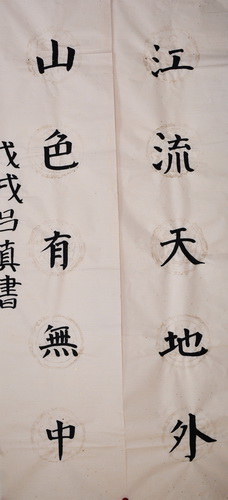 江流天地外
山色有無中
戊戌吕慎書